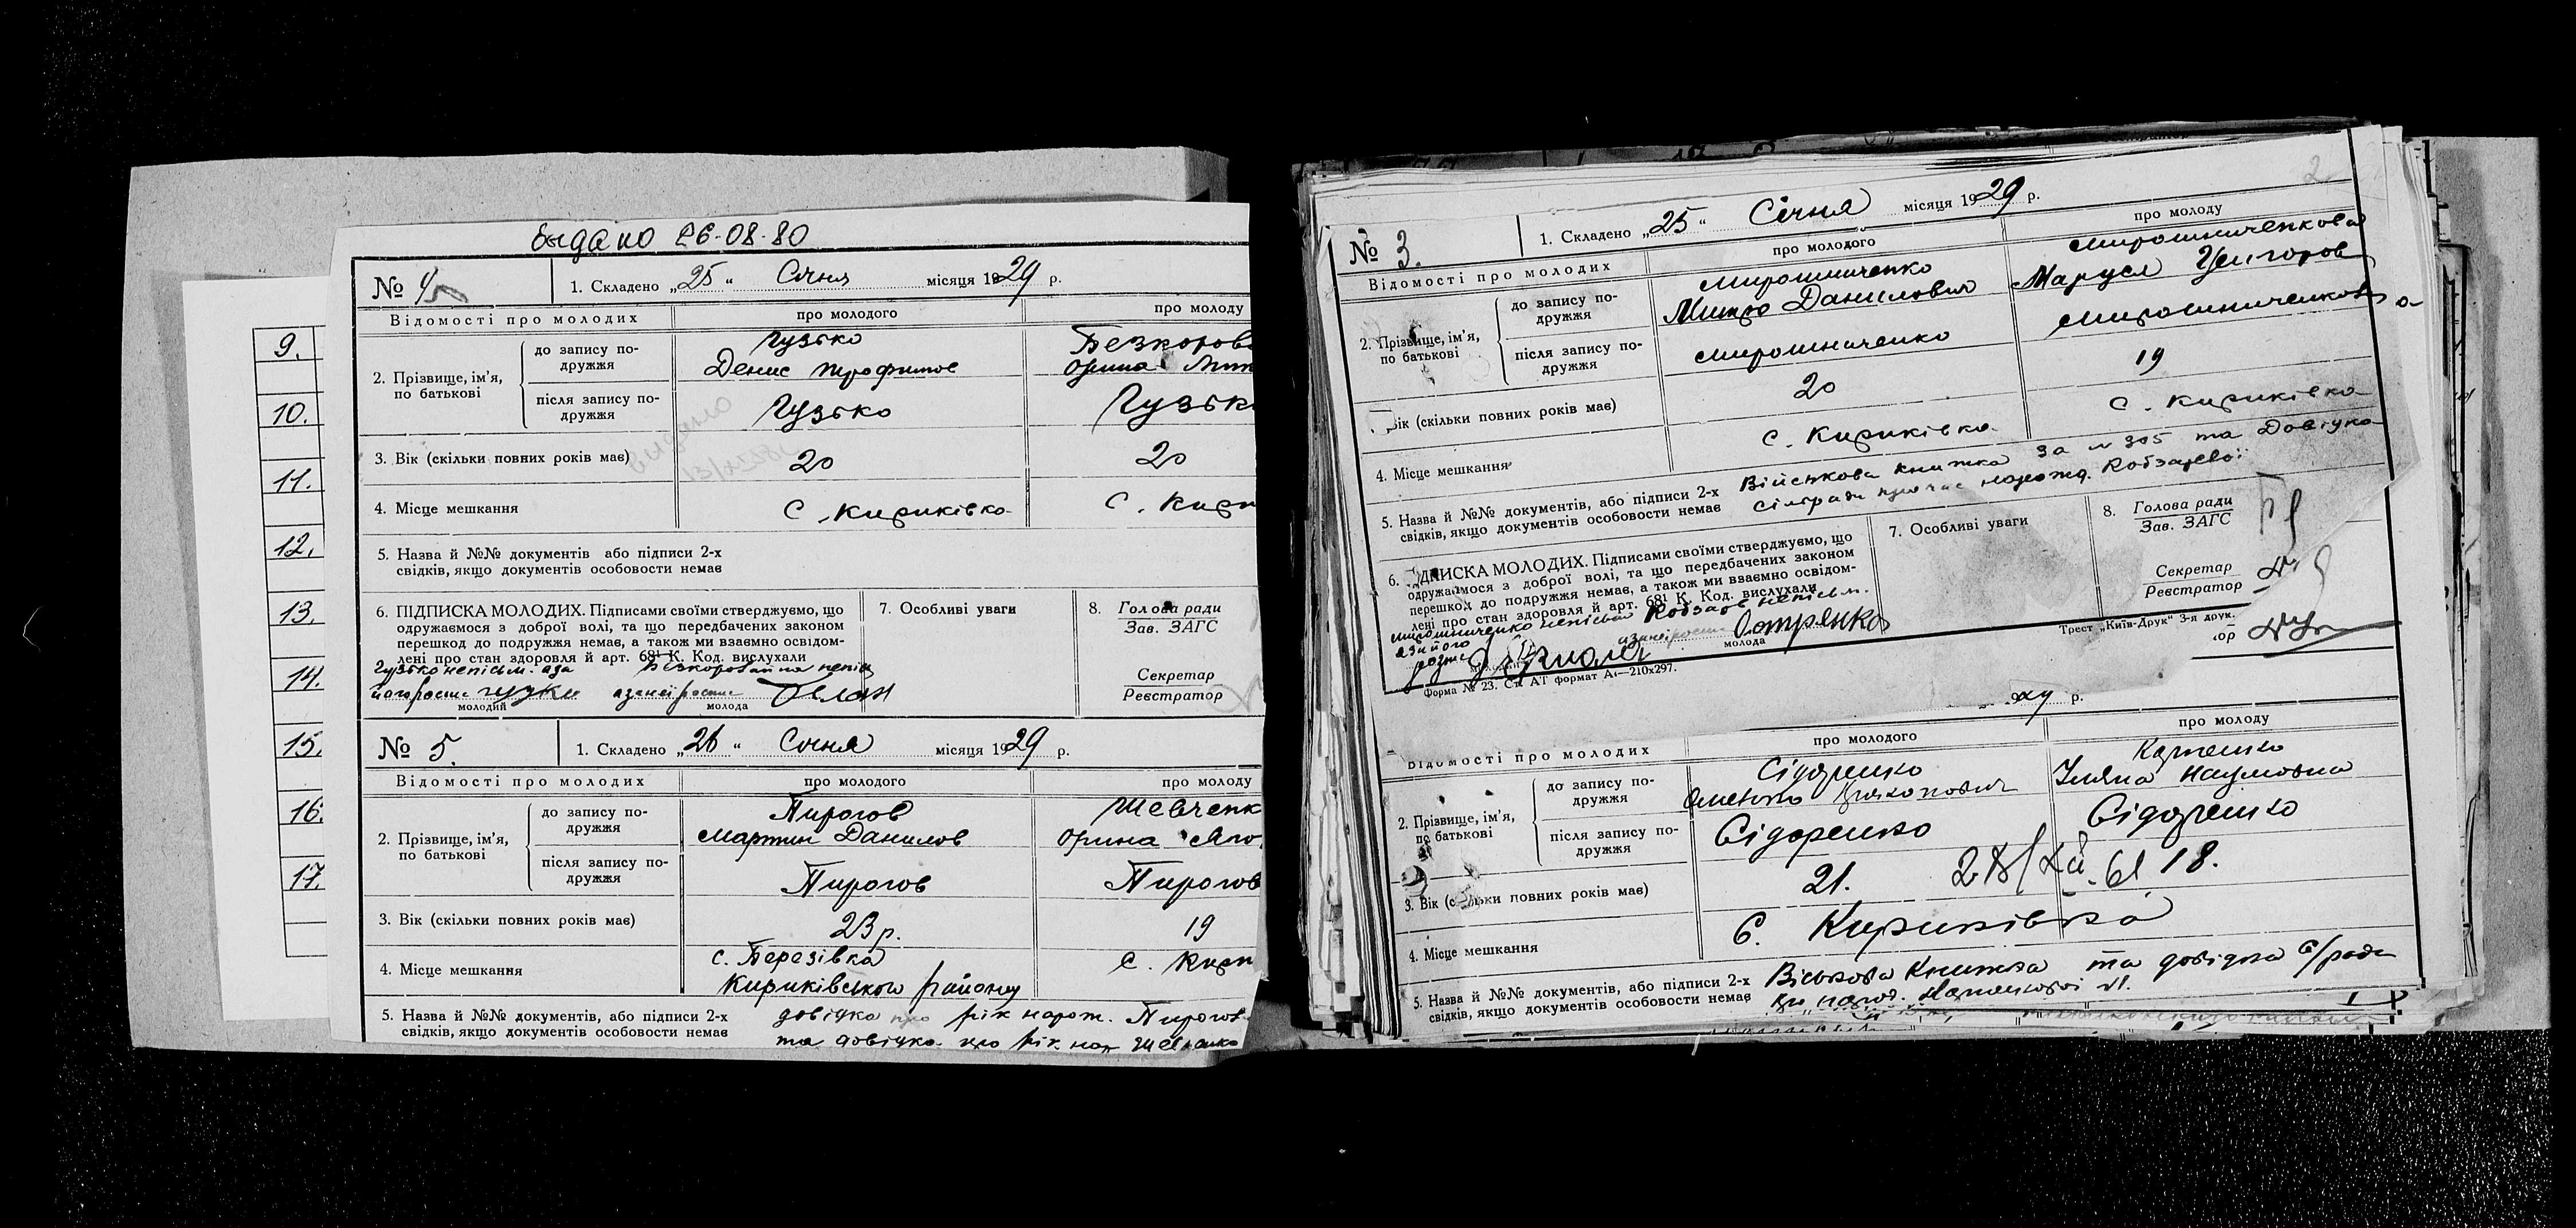 видано 26-08-80
№ 4
1. Складено „25“ Січня місяця 1929 р.
Відомості про молодих
про молодого
про молоду
2. Прізвище, ім'я, по батькові
до запису по-
дружжя
Гузько
Денис Трофимов
Безкорова
Орина
після запису по-
дружжя
Гузько
Гузьк
3. Вік (скільки повних років має)
20
20
4. Місце мешкання
с. Кириківка
с. Кири
5. Назва й №№ документів або підписи 2-х
свідків, якщо документів особовости немає
6. ПІДПИСКА МОЛОДИХ. Підписами своїми стверджуємо, що
одружаємося з доброї волі, та що передбачених законом
перешкод до подружжя немає, а також ми взаємно освідом-
лені про стан здоровля й арт. 68¹ К. Код. вислухали
Гузько неписьм. аза
Безкоровайна непис
його роспис
молодий
молода
7. Особливі уваги
8. Голова ради
Зав. ЗАГС
Секретар
Реєстратор
№ 5.
1. Складено „26“ Січня місяця 1929 р.
Відомості про молодих
про молодого
про молоду
2. Прізвище, ім'я,
по батькові
до запису по-
дружжя
Пирогов
Мартин Данилов
Шевченк
Орина
після запису по-
дружжя
Пирогов
Пирогов
3. Вік (скільки повних років має)
23 р.
19
4. Місце мешкання
с. Березівка
Кириківського району
с. Кири
5. Назва й №№ документів, або підписи 2-х
свідків, якщо документів особовости немає
довідка про рік нарож. Пирогов
та довідка про рік нар Шевченко
9.
10.
11.
12.
13.
14.
15.
16.
17.
2
№ 3.
1. Складено „25“ Січня місяця 1929 р.
Відомості про молодих
про молодого
про молоду
2. Прізвище, ім'я,
по батькові
до запису по-
дружжя
Мирошниченко
Митро Данилович
Мирошниченкова
Маруся Григоров
після запису по-
дружжя
Мирошниченко
Мирошниченкова
Вік (скільки повних років має)
20
19
4. Місце мешкання
с. Кириківка
с. Кириківка
5. Назва й №№ документів, або підписи 2-х
свідків, якщо документів особовости немає
Військова книжка за № 305 та Довідка
сільради про час нарожд. Кобзарево
6. ПІДПИСКА МОЛОДИХ. Підписами своїми стверджуємо, що
одружаємося з доброї волі, та що передбачених законом
перешкод до подружжя немає, а також ми взаємно освідом-
лені про стан здоровля й арт. 68¹ К. Код. вислухали
Мирошниченко неписьм
молода
7. Особливі уваги
8. Голова ради
Зав. ЗАГС
Секретар
Реєстратор
Форма № 23. Ст. АТ формат А₄—210х297.
Трест „Київ-Друк“ 3-я друк.
ор
р.
Відомості про молодих
про молодого
про молоду
2. Прізвище, ім'я,
по батькові
до запису по-
дружжя
Сідоренко
Карпенко
Уляна Наумовна
після запису по-
дружжя
Сідоренко
Сідоренко
3. Вік (скільки повних років має)
21.
18.
4. Місце мешкання
с. Кириківка
5. Назва й №№ документів, або підписи 2-х
свідків, якщо документів особовости немає
Військова Книжка та довідка с/ради